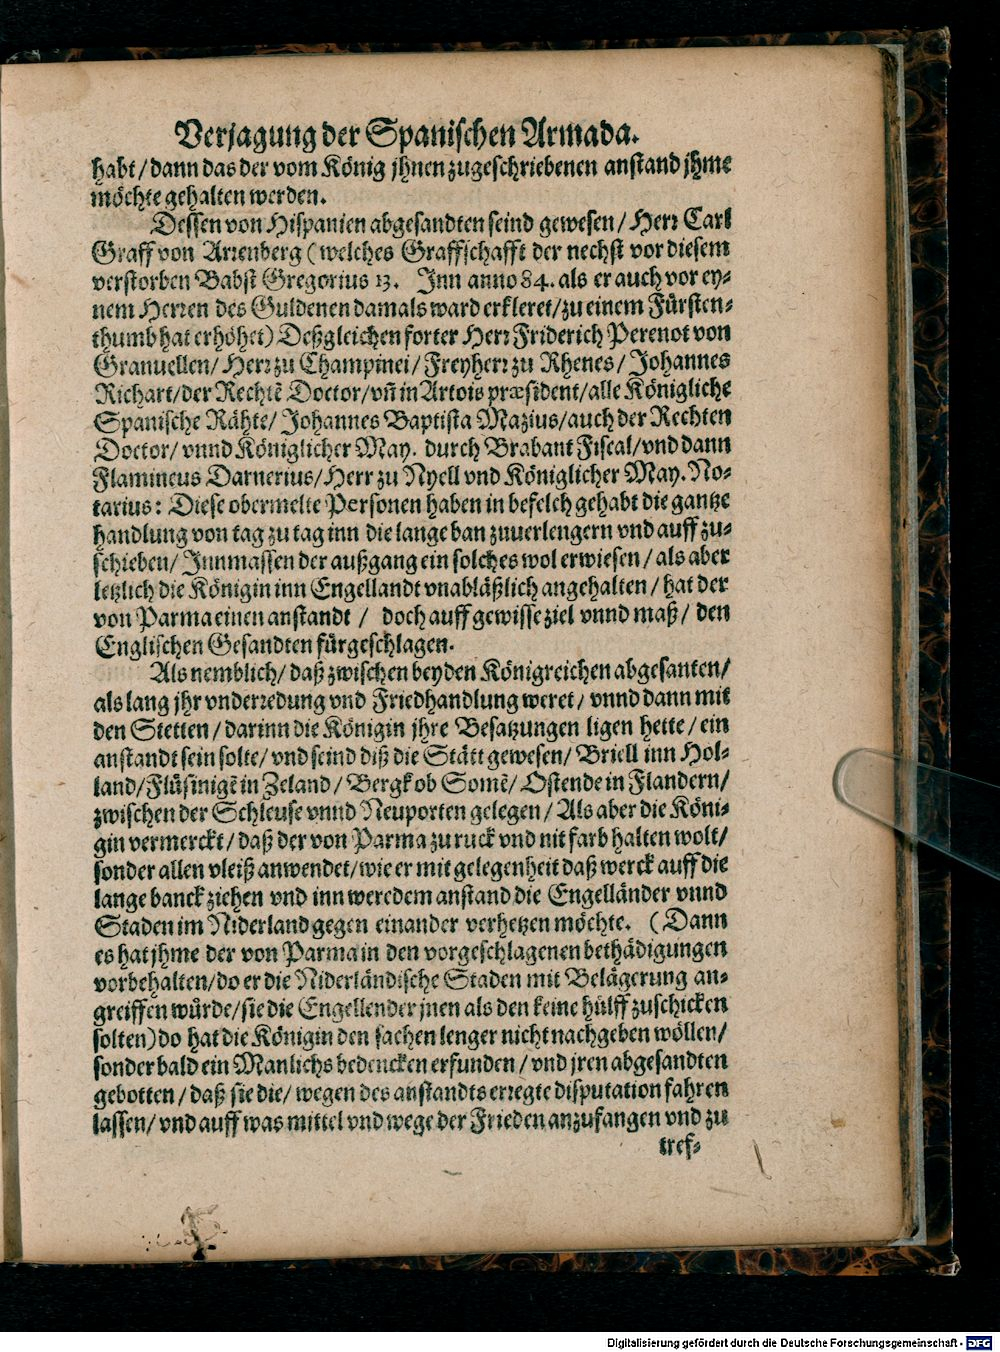 Verjagung der Spanischen Armada.
habt / dann das der vom König jhnen zugeschriebenen anstand jhme
möchte gehalten werden.
Dessen von Hispanien abgesandten seind gewesen / Herr Carl
Graff von Arrenberg ( welches Graffschafft der nechst vor diesem
verstorben Babst Gregorius 13. Inn anno 84. als er auch vor ey⸗
nem Herren des Guldenen damals ward erkleret / zu einem Fürsten⸗
thumb hat erhöhet) Deßgleichen forter Herr Friderich Perenot von
Granuellen / Herr zu Champinei / Freyherr zu Rhenes / Johannes
Richart / der Rechtē Doctor / vñ in Artois præsident / alle Königliche
Spanische Rähte / Johannes Baptista Mazius / auch der Rechten
Doctor / vnnd Königlicher May. durch Brabant Fiscal / vnd dann
Flamineus Darnerius / Herr zu Nyell vnd Königlicher May. No⸗
tarius : Diese obermelte Personen haben in befelch gehabt die gantze
handlung von tag zu tag inn die lange ban zuuerlengern vnd auff zu⸗
schieben / Innmassen der außgang ein solches wol erwiesen / als aber
letzlich die Königin inn Engellandt vnabläßlich angehalten / hat der
von Parma einen anstandt / doch auff gewisse ziel vnnd maß / den
Englischen Gesandten fürgeschlagen.
Als nemblich / daß zwischen beyden Königreichen abgesanten /
als lang jhr vnderredung vnd Friedhandlung weret / vnnd dann mit
den Stetten / darinn die Königin jhre Besatzungen ligen hette / ein
anstandt sein solte / vnd seind diß die Stätt gewesen / Briell inn Hol⸗
land / Flüsingē in Zeland / Bergk ob Somē / Ostende in Flandern /
zwischen der Schleuse vnnd Neuporten gelegen / Als aber die Köni⸗
gin vermerckt / daß der von Parma zu ruck vnd nit farb halten wolt /
sonder allen vleiß anwendet / wie er mit gelegenheit daß werck auff die
lange banck ziehen vnd inn weredem anstand die Engelländer vnnd
Staden im Niderland gegen einander verhetzen möchte. ( Dann
es hat jhme der von Parma in den vorgeschlagenen bethädigungen
vorbehalten / do er die Niderländische Staden mit Belägerung an⸗
greiffen würde / sie die Engellender jnen als den keine hülff zuschicken
solten) do hat die Königin den sachen lenger nicht nachgeben wöllen /
sonder bald ein Manlichs bedencken erfunden / vnd jren abgesandten
gebotten / daß sie die / wegen des anstandts erregte disputation fahren
lassen / vnd auff was mittel vnd wege der Frieden anzufangen vnd zu
tref⸗
Digitalisierung gefördert durch die Deutsche Forschungsgemeinschaft - DFG